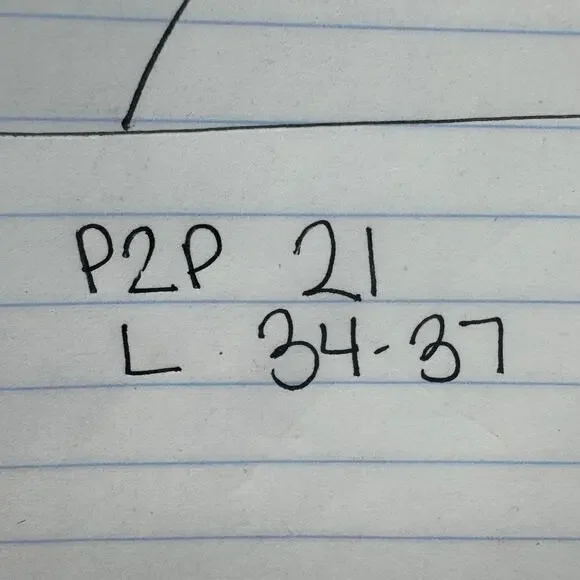 P2P 21
L 34-37